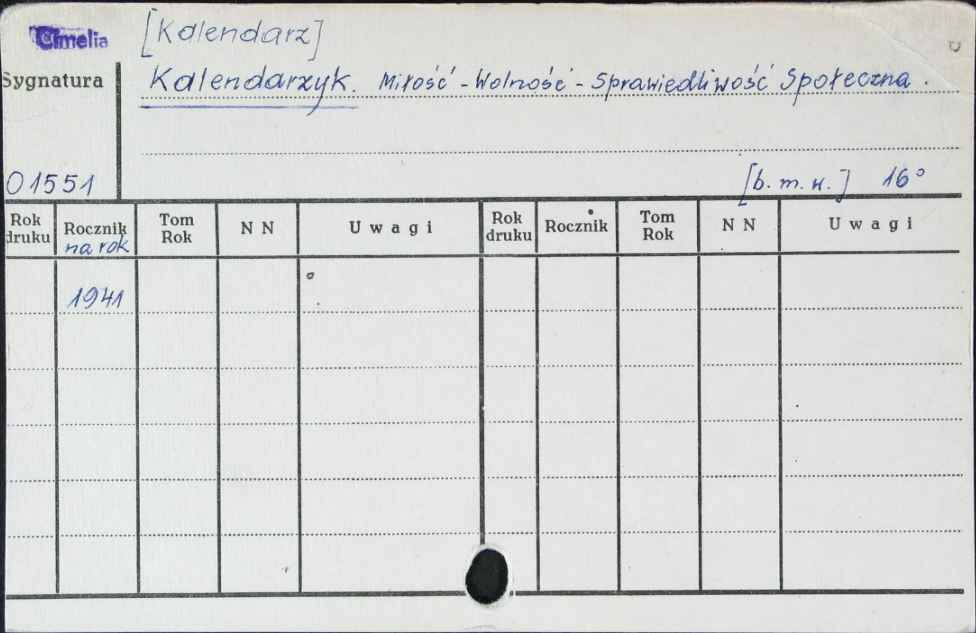 Cimelia
[Kalendarz]
Sygnatura
Kalendarzyk. Miłość - Wolność - Sprawiedliwość Społeczna.
01551
[b. m. w.] 16°
Rok druku Rocznik na rok Tom Rok N N Uwagi Rok druku Rocznik Tom Rok N N Uwagi
1941